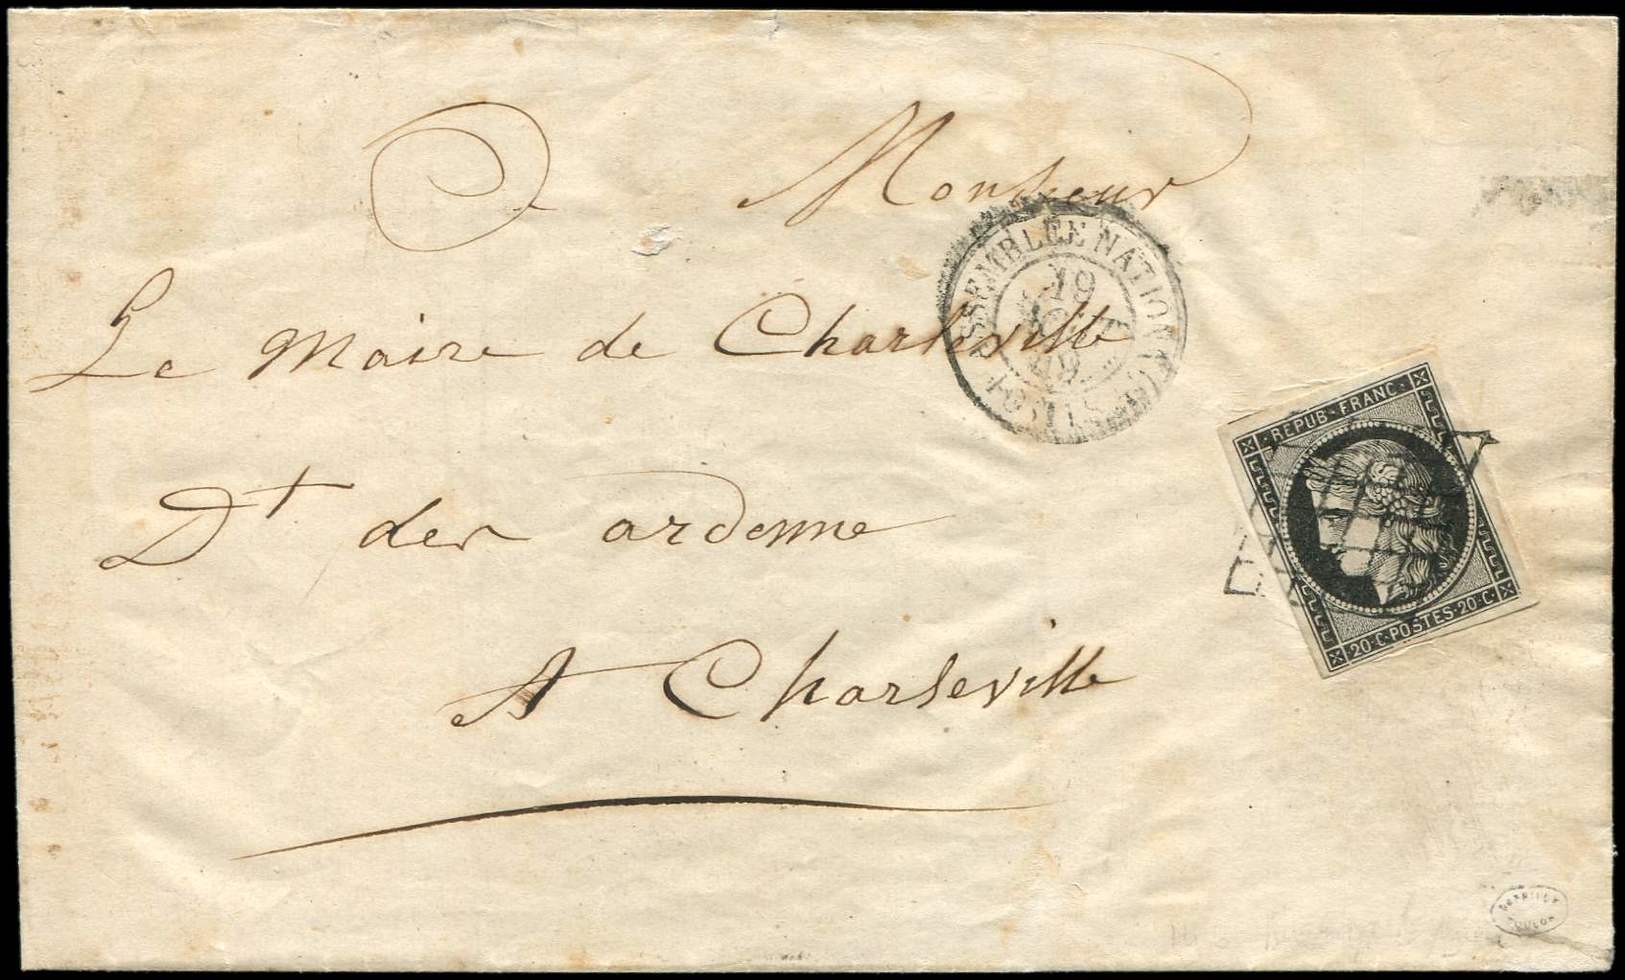 A Monsieur
Le Maire de Charleville
Dt des ardenne
A Charleville
ASSEMBLÉE NATIONALE
19
49
POSTES
REPUB·FRANC·
20·C·POSTES·20·C·
TOULON